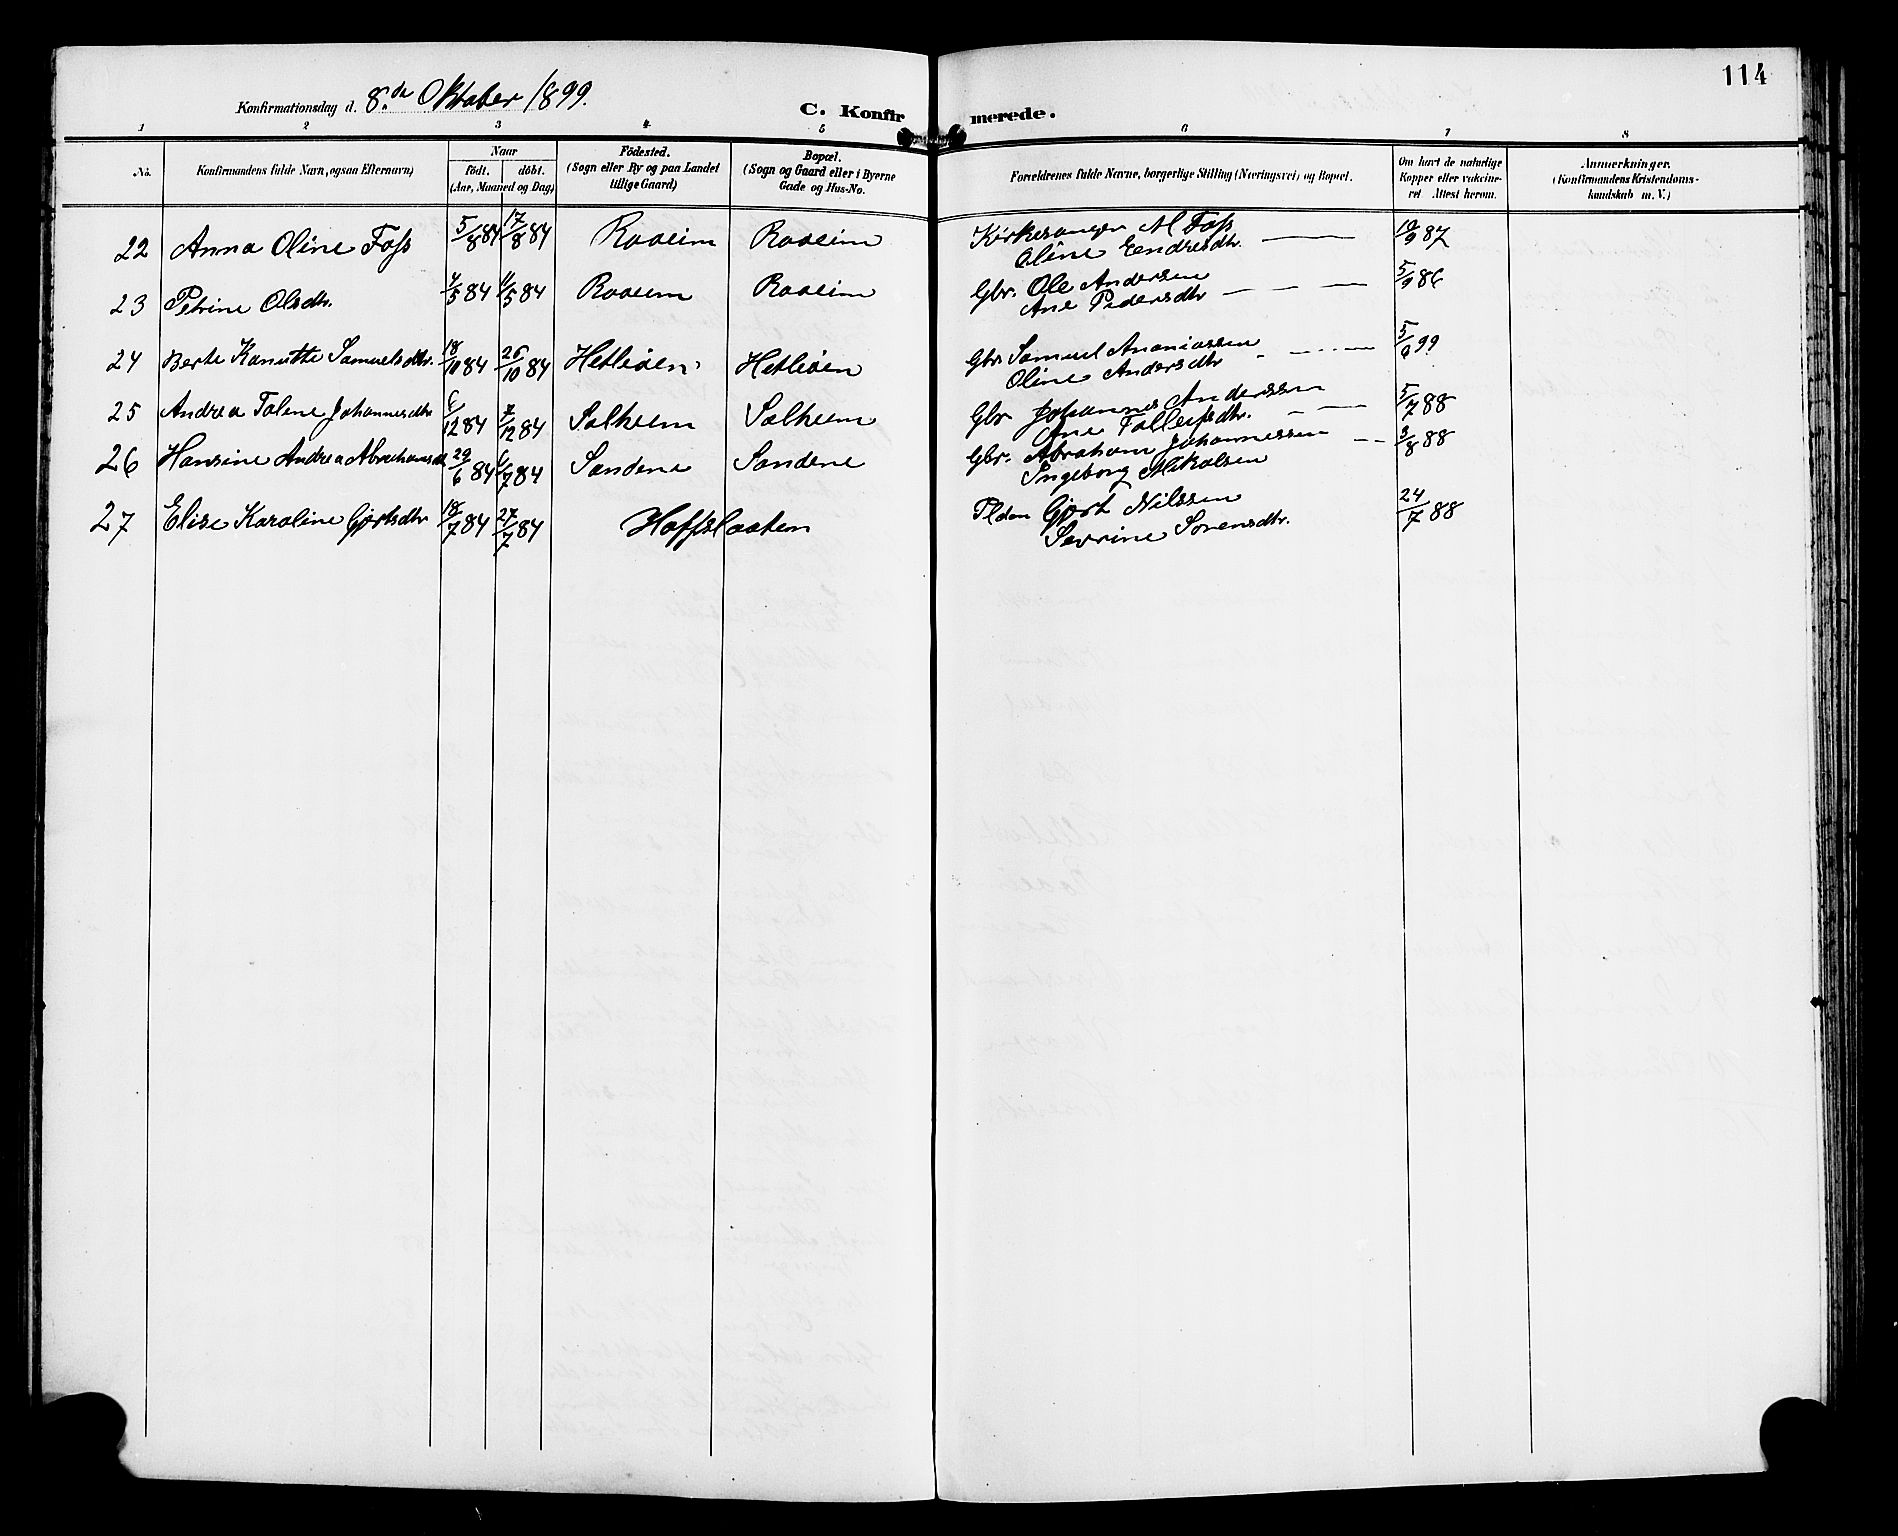 114
Konfirmationsdag d. 8.de Oktober 1899.
C. Konfirmerede.
1 2 3 4 5 6 7 8
No. Konfirmandens fulde Navn, ogsaa Efternavn) Naar födt. döbt. (Aar, Maaned og Dag) Födested. (Sogn eller By og paa Landet tillige Gaard) Bopæl. (Sogn og Gaard eller i Byerne Gade og Hus-No. Forældrenes fulde Navne, borgerlige Stilling (Næringsvei) og Bopæl. Om havt de naturlige Kopper eller vakcineret. Attest herom. Anmærkninger. (Konfirmandens Kristendomskundskab m. V.)
22 Anna Oline Foss 5/8 84 17/8 84 Raaeim Raaeim Kirkesanger M Foss 10/9 87
Oline Eendresdtr.
23 Petrine Olsdtr. 4/5 84 11/5 84 Raaeim Raaeim Gbr. Ole Andersen 5/9 86
Ane Pedersdtr
24 Berte Kanutte Samuelsdtr. 18/10 84 26/10 84 Hetleøen Hetleøen Gbr Samuel Ananiassen 5/9 99
Oline Andersdtr
25 Andrea Talene Johannesdtr 6/12 84 7/12 84 Solheim Solheim Gbr Johannes Anderssen 5/7 88
Ane Tollefsdtr.
26 Hansine Andrea Abrahamsdt 29/6 84 6/7 84 Sandene Sandene Gbr. Abraham Johannessen 3/8 88
Ingeborg Mikalsen
27 Elise Karoline Gjertsdtr 18/7 84 27/7 84 Hoffslaatten Gjert Nilssen 24/7 88
Sevrine Sørensdtr.